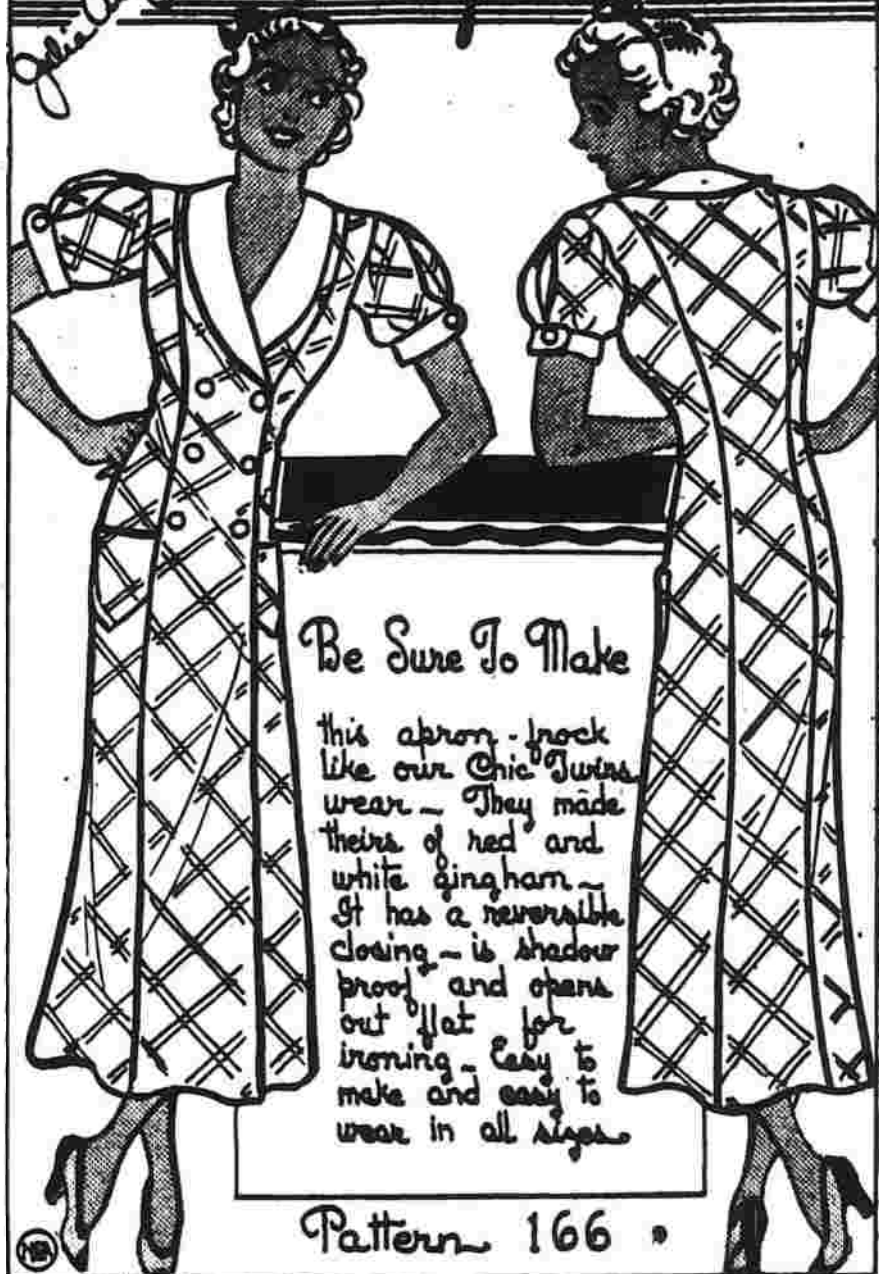 Julia
Be Sure To Make
this apron - frock
like our Chic Twins
wear ~ They made
theirs of red and
white gingham ~
It has a reversible
closing ~ is shadow
proof and opens
out flat for
ironing ~ Easy to
make and easy to
wear in all sizes.
Pattern 166